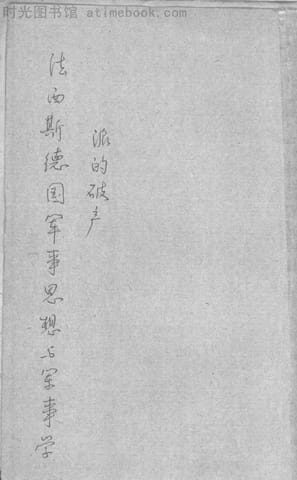 时光图书馆 - atimebook.com
法西斯德国军事思想与军事学
派的破产